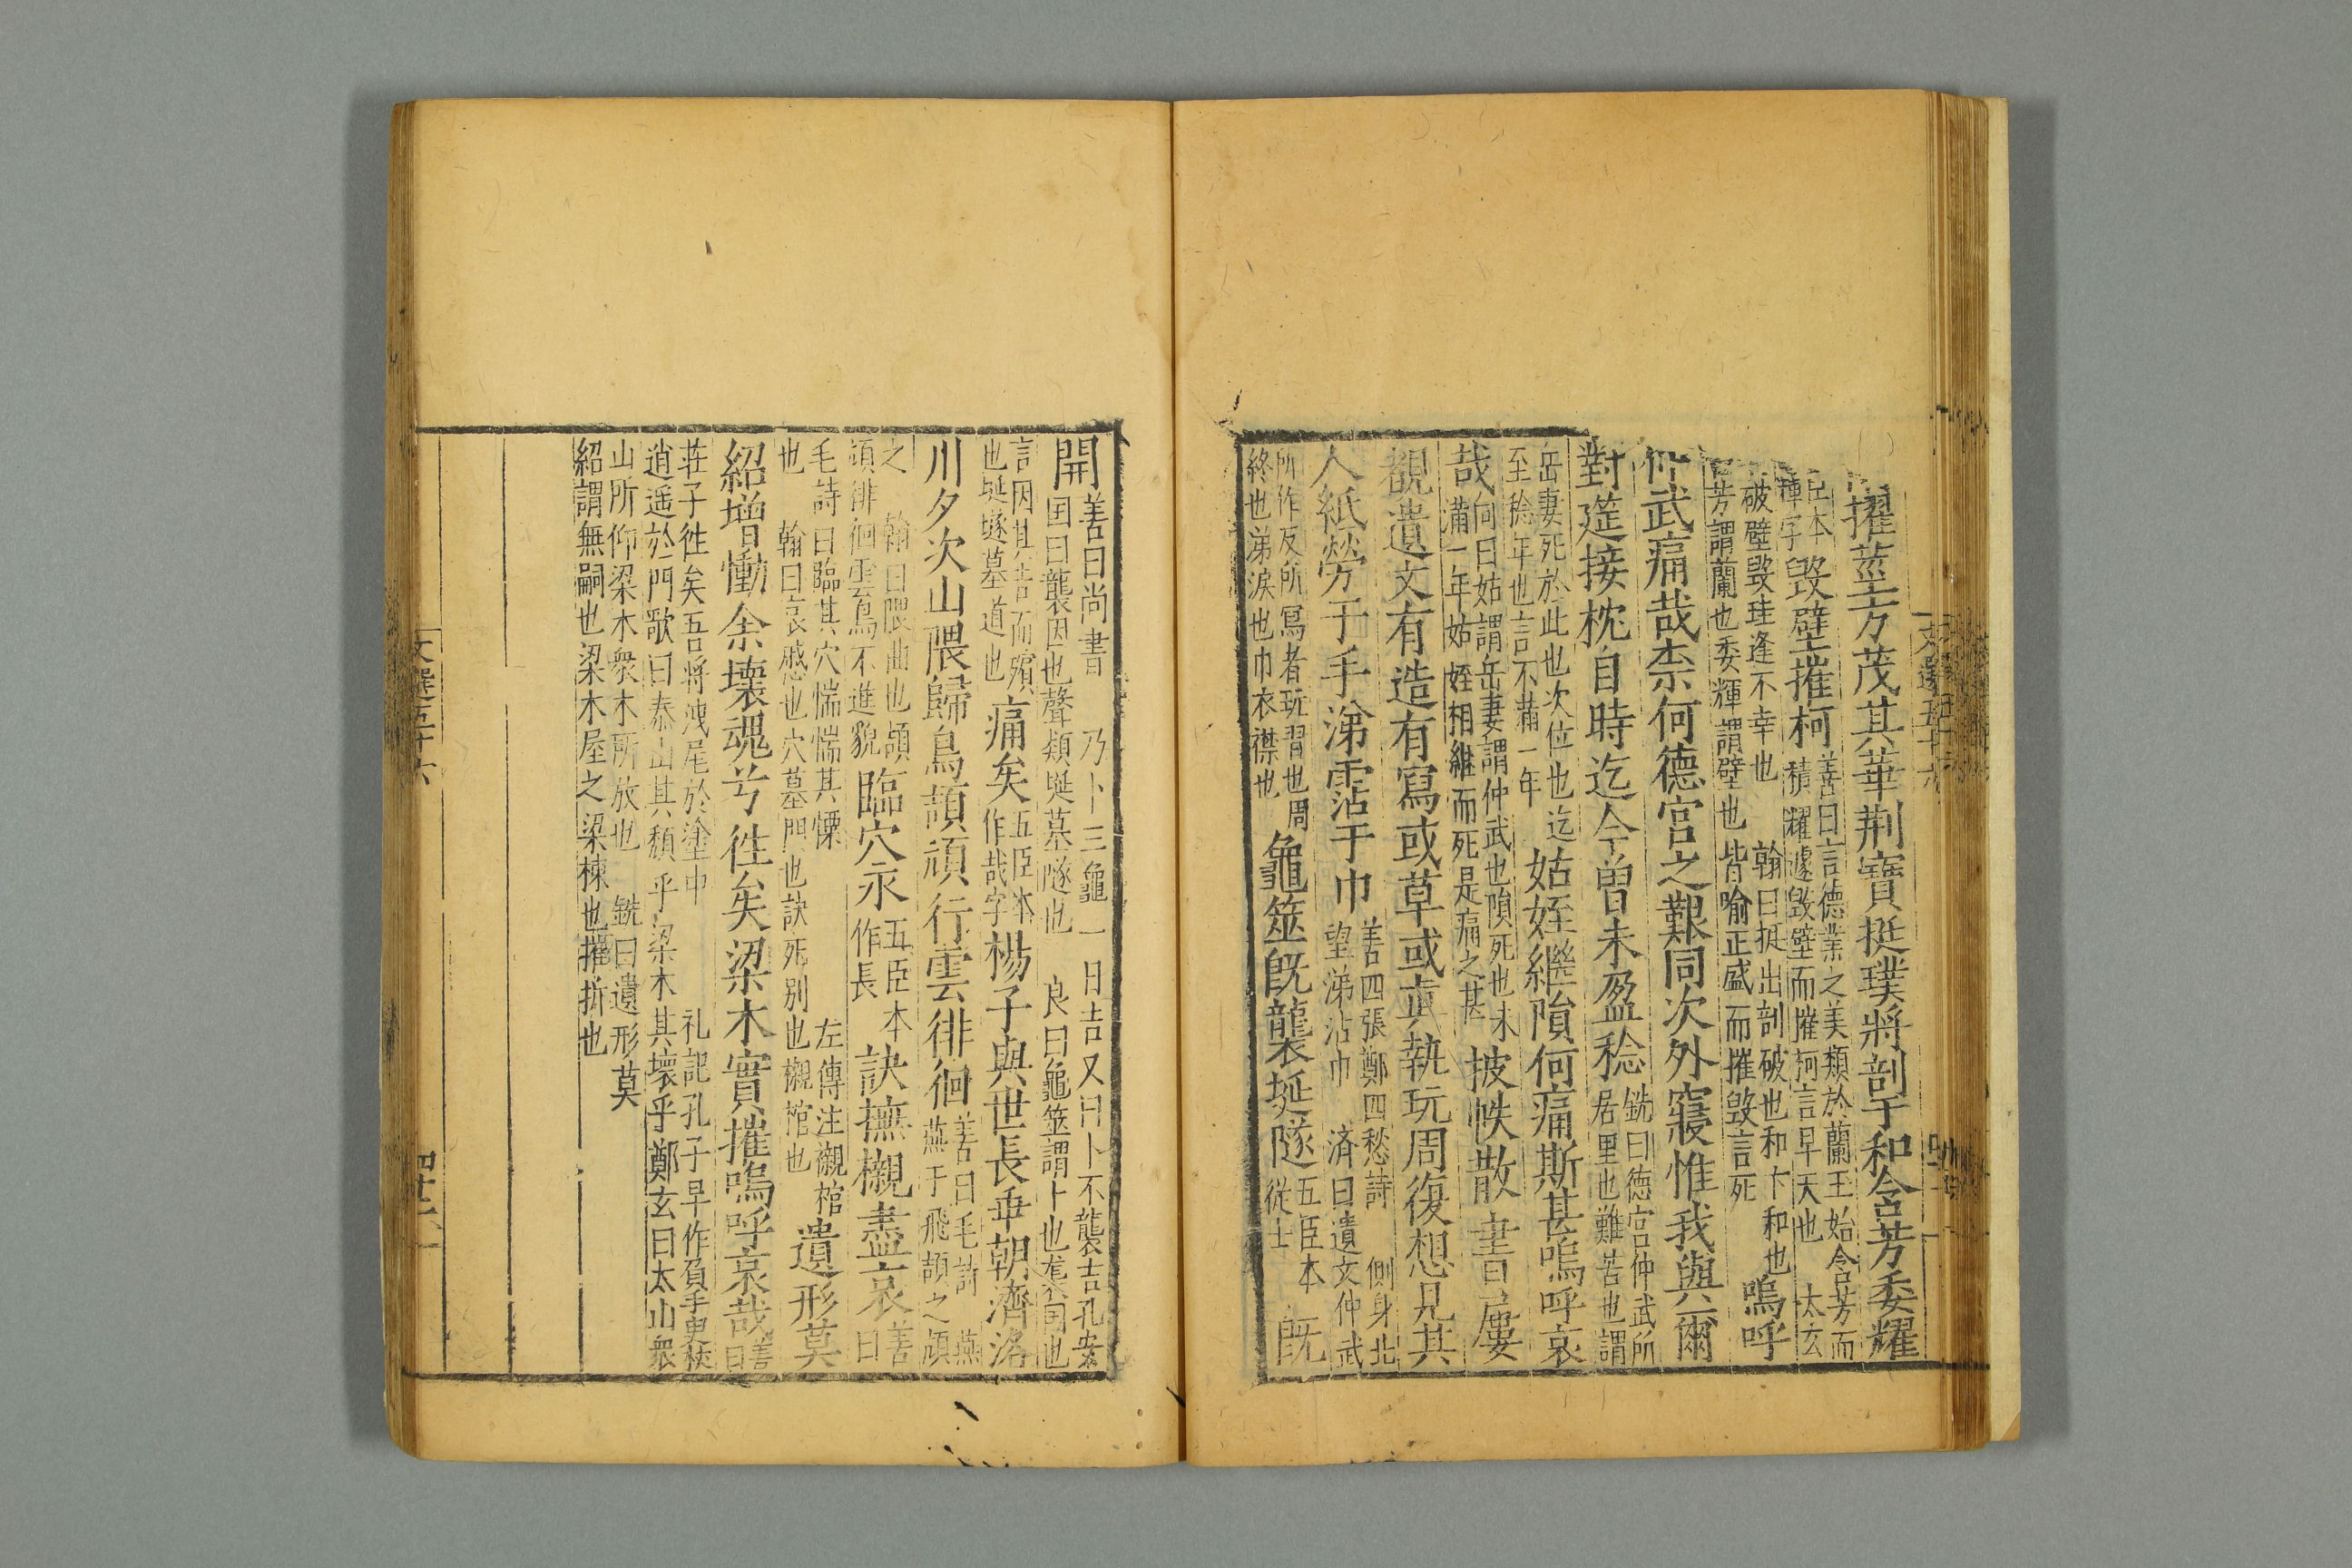 擢莖方茂其華荆寶挺璞將剖于和含芳委耀
臣本
輝字
毀壁摧柯
善曰言德業之美類於蘭玉始含芳而
積耀遽毀壁而摧柯言早夭也 太玄
破壁毀珪逢不幸也 翰曰挺出剖破也和卞和也
芳謂蘭也委輝謂壁也皆喻正盛而摧毀言死
嗚呼
仲武痛哉柰何德宮之艱同次外寢惟我與爾
對筵接枕自時迄今曽未盈稔
銑曰德宮仲武所
居里也難苦也謂
岳妻死於此也次位也迄
至稔年也言不滿一年
姑姪繼隕何痛斯甚嗚呼哀
哉
向曰姑謂岳妻謂仲武也隕死也未
滿一年姑姪相継而死是痛之甚
披帙散書屢
覩遺文有造有寫或草或真執玩周復想見其
人紙勞于手涕霑于巾
善四張鄭四愁詩 側身北
望涕沾巾 済曰遺文仲武
所作反所寫者玩習也周
終也涕淚也巾衣襟也
龜筮旣襲埏隧
五臣本
從士
旣
開
善曰尚書 乃卜三龜一日吉又曰卜不襲吉孔安
国曰襲因也聲類埏墓隧也 良曰龜筮謂卜也
言因其吉而殯
也埏墜墓道也
痛矣
五臣本
作哉字
楊子與世長乖朝濟洛
川夕次山隈歸鳥頡頏行雲徘徊
善曰毛詩 燕
燕于飛頡之頏
之 翰曰隈曲也頡
頏徘徊雲鳥不進貌
臨穴永
五臣本
作長
訣撫櫬盡哀
善
曰
毛詩曰臨其穴惴惴其慄 左傳注櫬棺
也 翰曰哀慼也穴墓門也訣死别也櫬棺也
遺形莫
紹增慟余壞魂兮徃矣梁木實摧嗚呼哀哉
善
曰
莊子徃矣吾將洩尾於塗中 礼記孔子早作負手曳杖
逍遥於門歌曰泰山其頽乎梁木其壞乎鄭玄曰太山衆
山所仰梁木衆木所放也 銑曰遺形莫
紹謂無嗣也梁木屋之梁棟也摧折也
文選五十六